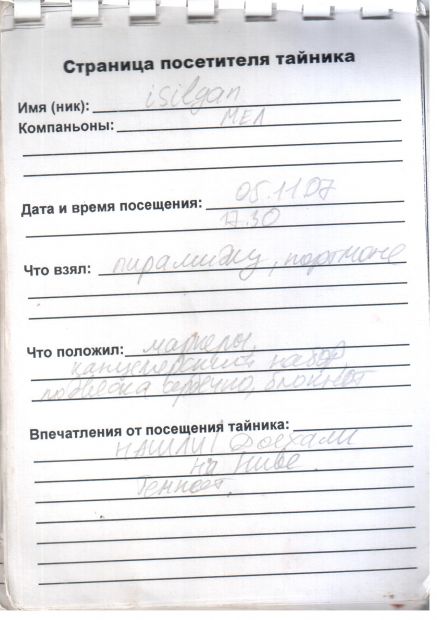 Страница посетителя тайника
Имя (ник): isilgan
Компаньоны: МЕЛ
Дата и время посещения: 05.11.07
17.30
Что взял: пирамидку, портмоне
Что положил: маркеры,
канцелярский набор,
подвеска блокнот
Впечатления от посещения тайника:
НАШЛИ! Доехали
на Ниве.